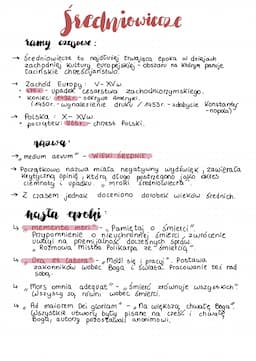 Średniowiecze
ramy czasowe:
→ Średniowiecze to najdłużej trwająca epoka w dziejach
zachodniej kultury europejskiej - obszaru na którym panuje
łacińskie chrześcijaństwo.
→ Zachód Europy: V-XVw.
• 476r. - upadek cesarstwa zachodniorzymskiego.
• koniec: 1492r. - odkrycie Ameryki.
(1450r. - wynalezienie druku / 1453r. - zdobycie Konstanty-
-nopola)
→ Polska: X-XVw.
• początek: 966r. chrzest Polski.
nazwa:
→ „medium aevum" - WIEKI ŚREDNIE
→ Początkowo nazwa miała negatywny wydźwięk, zawierała
krytyczną opinię, którą długo postrzegano jako okres
ciemnoty i upadku „mroki średniowiecza".
→ Z czasem jednak doceniono dorobek wieków średnich.
hasła epoki:
→ „memento mori" - „Pamiętaj o śmierci".
Przypomnienie o nieuchronnej śmierci, zwrócenie
uwagi na przemijalność doczesnych spraw.
„Rozmowa mistrza Polikarpa ze śmiercią".
→ „Ora et labora" - „Módl się i pracuj". Postawa
zakonników wobec Boga i świata. Pracowanie też nad
sobą.
→ „Mors omnia adequat" - „śmierć zrównuje wszystkich"
Wszyscy są równi wobec śmierci.
→ „Ad maiorem Dei gloriam" - „Na większą chwałę Boga".
Wszystkie utwory były pisane na cześć i chwałę
Boga, autorzy pozostawali anonimowi.